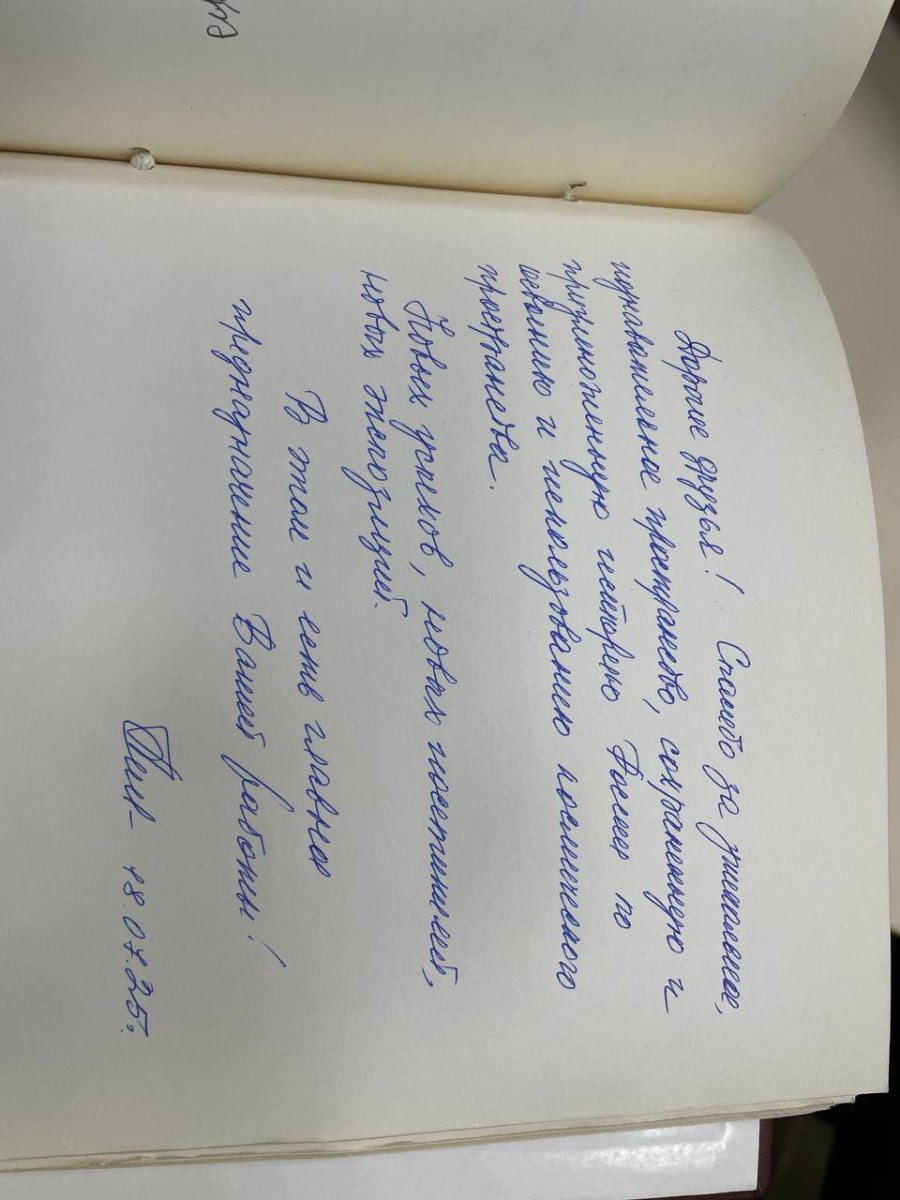 Дорогие друзья! Спасибо за уникальное,
познавательное пространство, сохраненную и
приумноженную историю России по
освоению и использованию космического
пространства.
Новых успехов, новых посетителей,
новых экспозиций.
В этом и есть главное
предназначение Вашей работы!
18.07.25г.